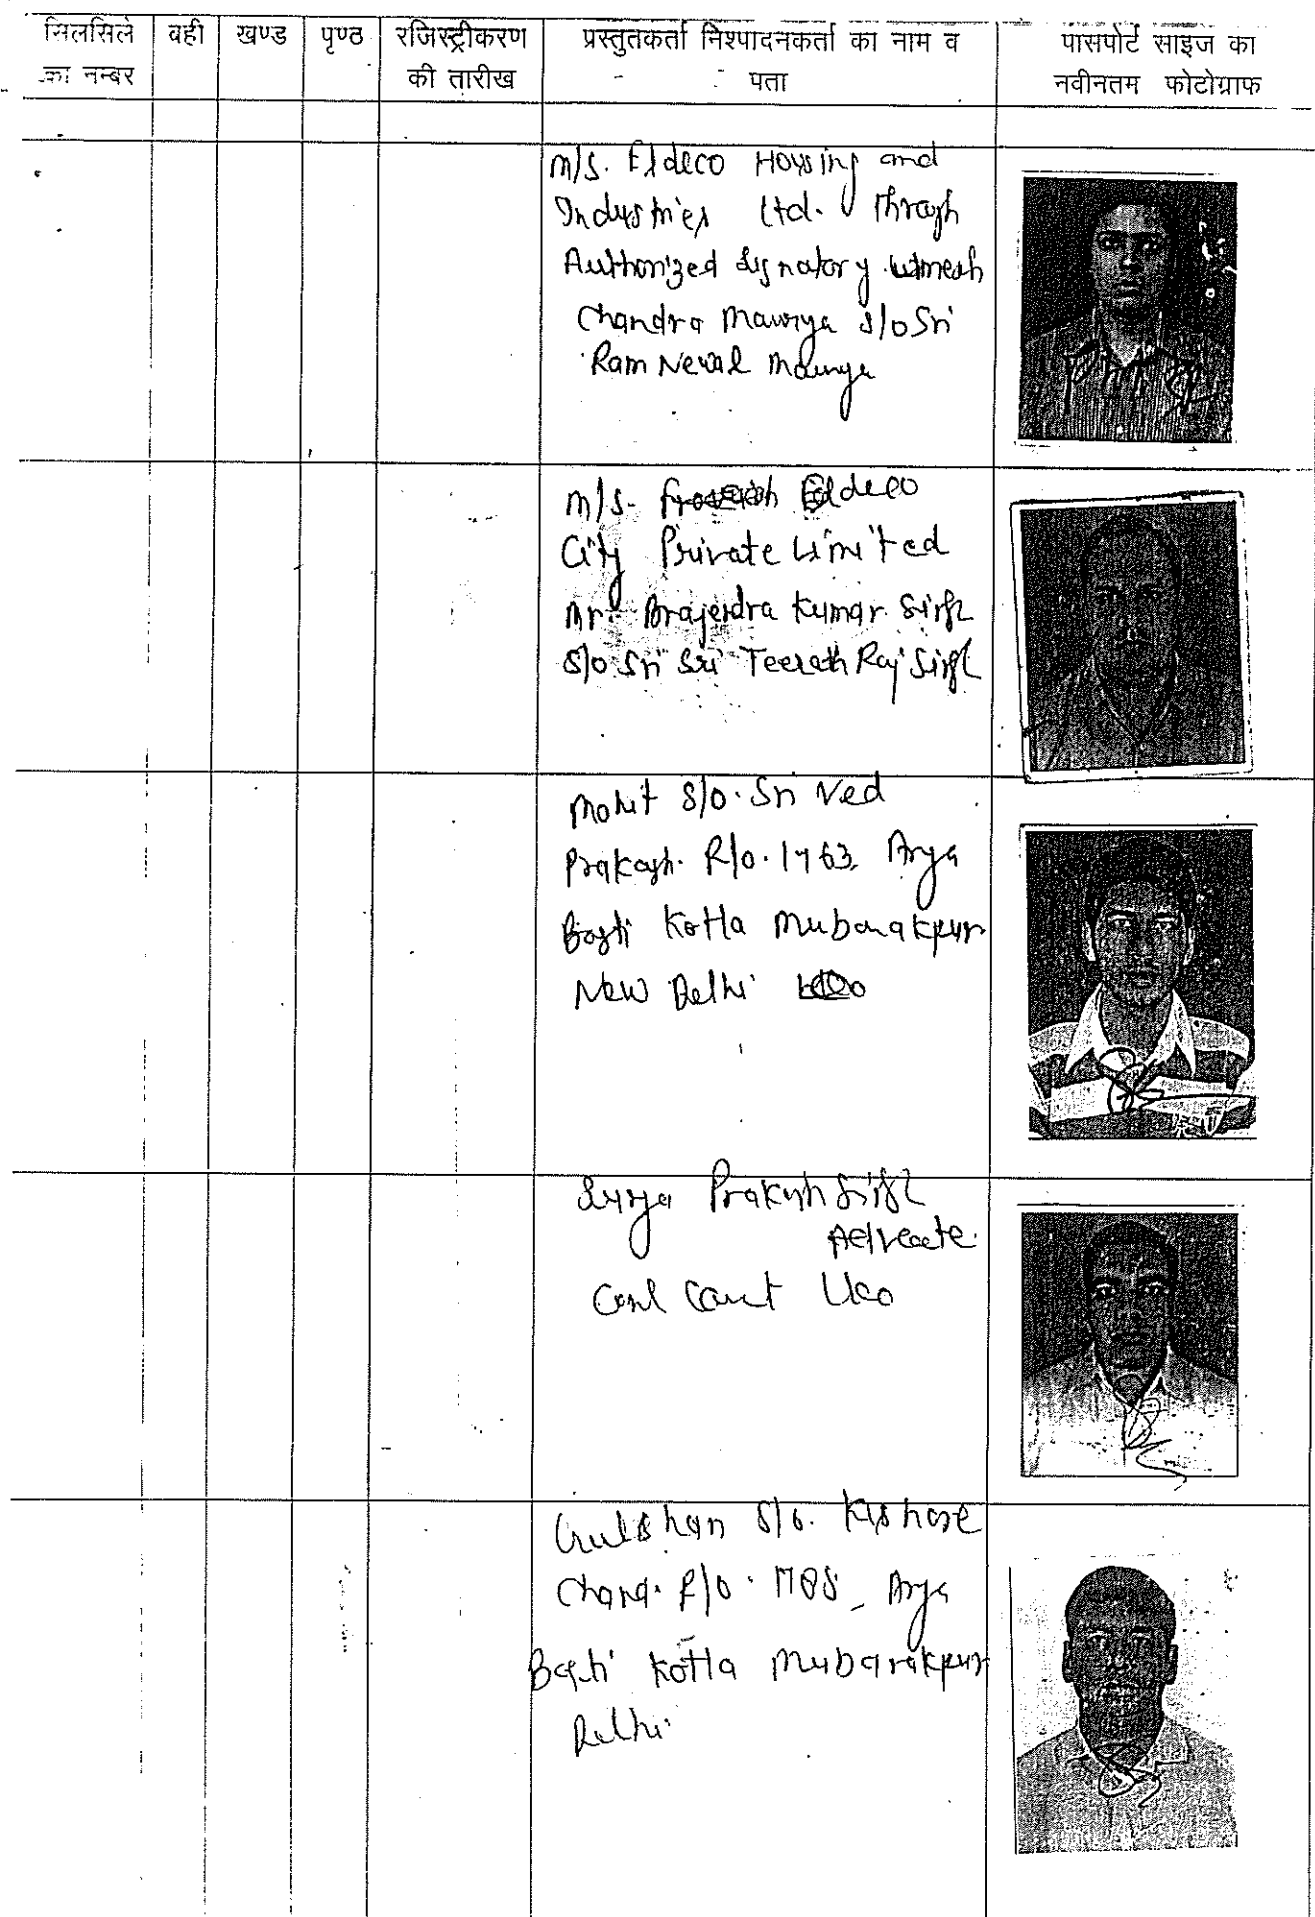 सिलसिले का नम्बर
वही
खण्ड
पृष्ठ
रजिस्ट्रीकरण की तारीख
प्रस्तुतकर्ता निश्पादनकर्ता का नाम व पता
पासपोर्ट साइज का नवीनतम फोटोग्राफ
M/S. Eldeco Housing and
Industries Ltd. Through
Authorized Signatory Umesh
Chandra Maurya S/o Sri
Ram Newal Maurya
M/S. Eldeco
City Private Limited
Mr. Brajendra Kumar Singh
S/o Sri Sri Teerath Raj Singh
Mohit S/o. Sri Ved
Prakash. R/o. 1763, Arya
Basti Kotla Mubarakpur
New Delhi
Surya Prakash Singh
Advocate.
Civil Court Lko
Gulshan S/o. Kishore
Chand. R/o. 1785, Arya
Basti Kotla Mubarakpur
Delhi